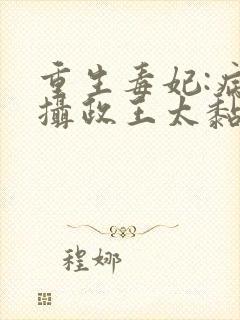 重生毒妃:病
攝政王太黏
程娜